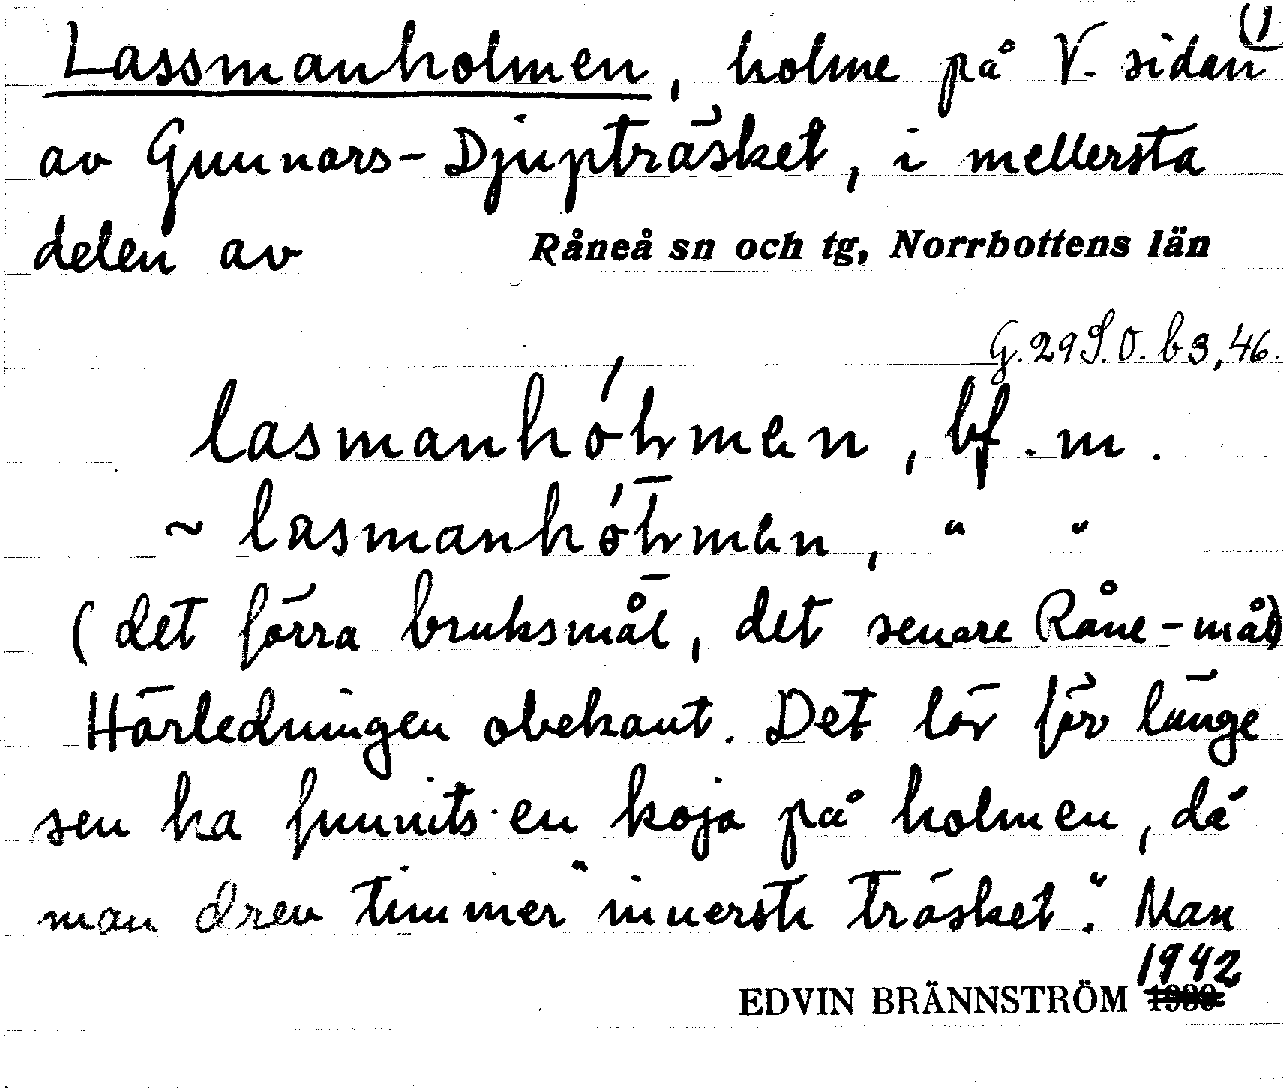 (1
Lassmanholmen, holme på V. sidan
av Gunnars-Djupträsket, i mellersta
delen av Råneå sn och tg, Norrbottens län
G.29 S.O. b 3, 46.
lasmanhólmen, bf. m.
~ lasmanhółmen, " "
(det förra bruksmål, det senare Råne-mål)
Härledningen obekant. Det lär för länge
sen ha funnits en koja på holmen, då
man drev timmer "innersti träsket". Man
EDVIN BRÄNNSTRÖM 1942